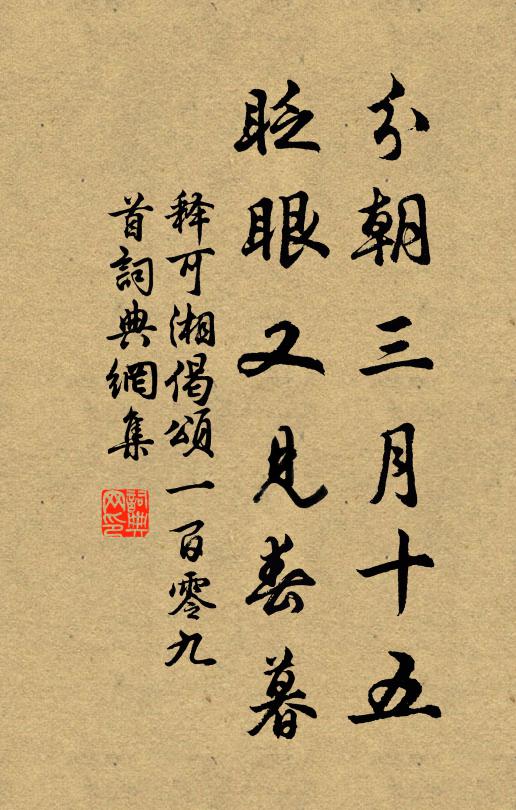 分朝三月十五
眨眼又見春暮
释可湘偈頌一百零九
首詞典網集
詞典
网印